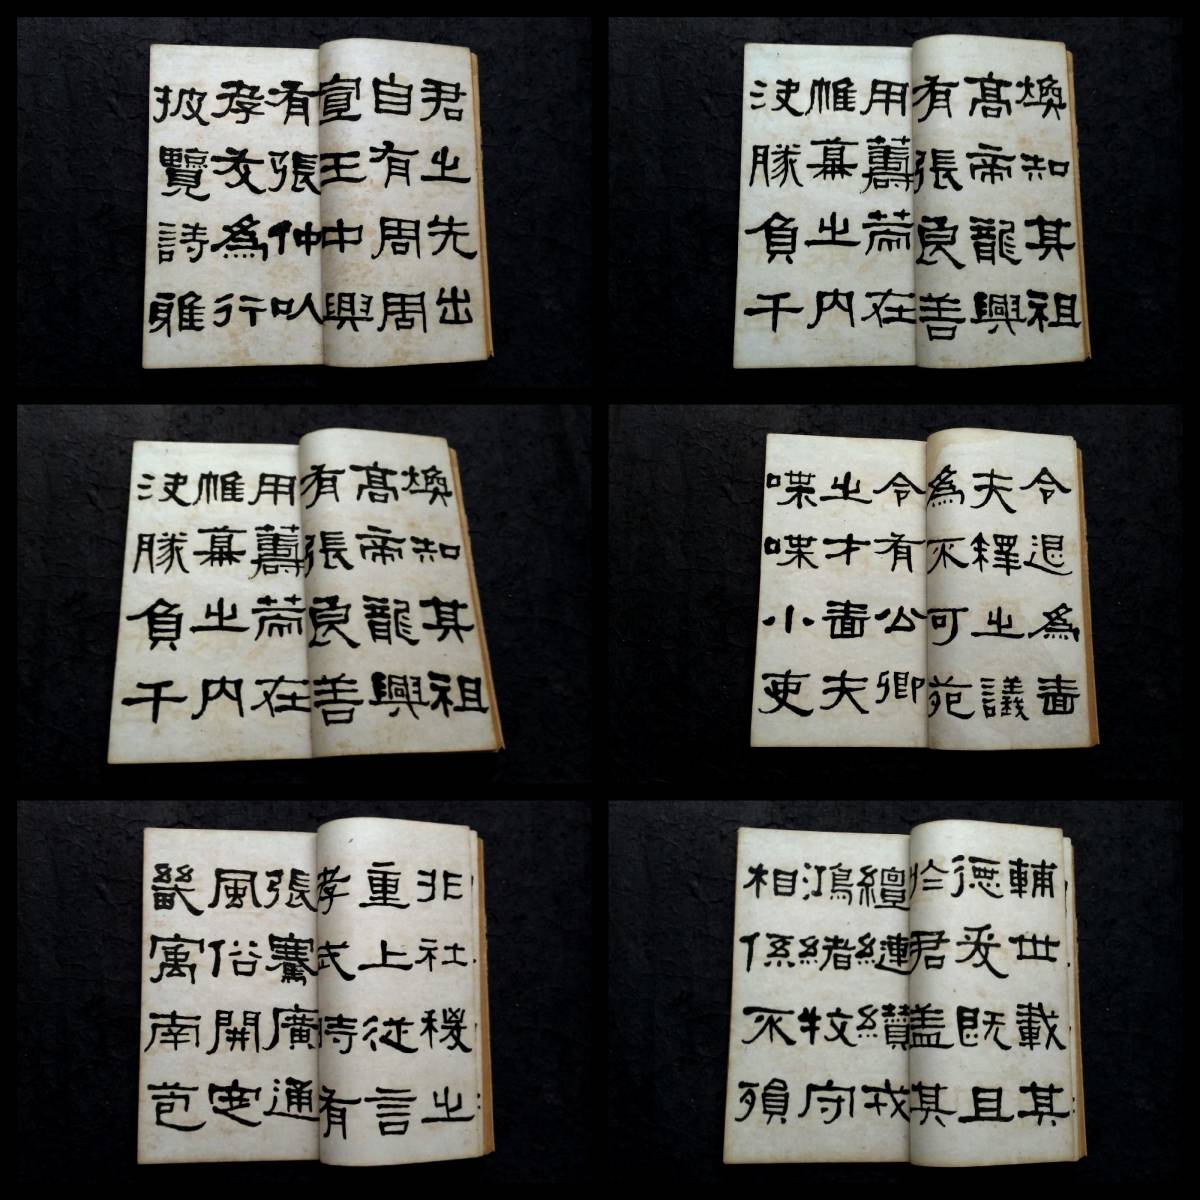 君之先出
自有周周
宣王中興
有張仲以
孝友為行
披覽詩雅
煥知其祖
高帝龍興
有張良善
用籌策在
帷幕之內
决勝負千
煥知其祖
高帝龍興
有張良善
用籌策在
帷幕之內
决勝負千
令退為嗇
夫釋之議
為不可苑
令有公卿
之才嗇夫
喋喋小吏
非社稷之
重上從言
孝武時有
張騫廣通
風俗開定
畿寓南苞
輔世載其
德爰既且
於君盖其
繵縺纘戎
鴻緒牧守
相係不殞